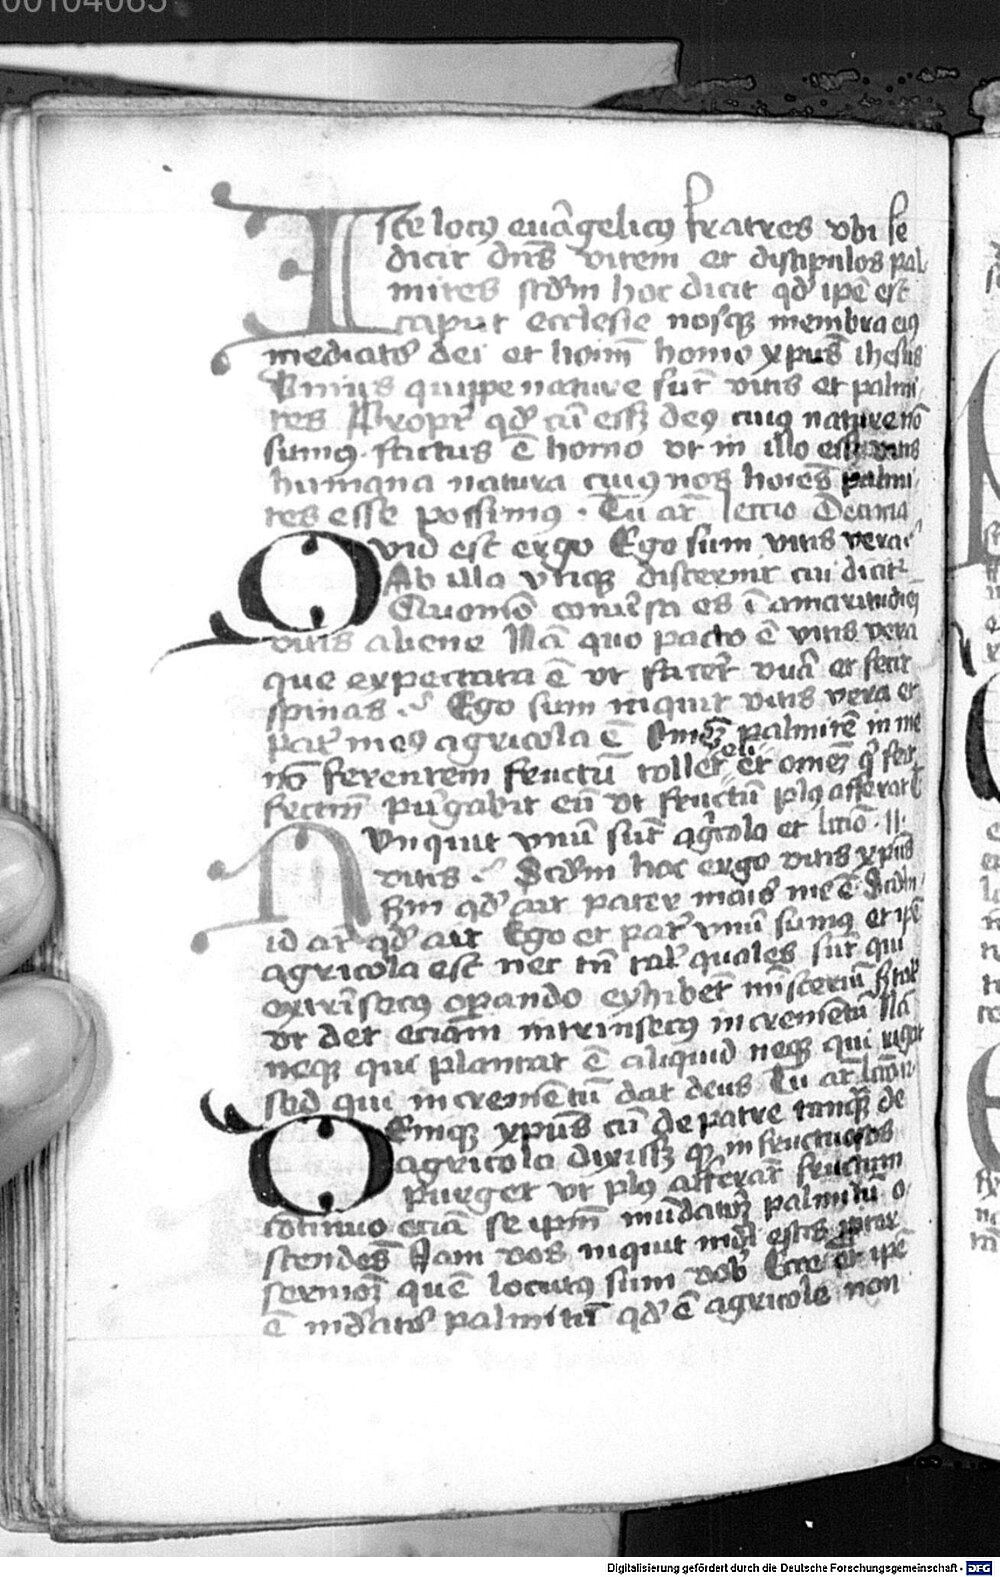 00104065
Iste locꝰ euāgelicꝰ fratres vbi se
dicit dn̄s vitem et discipulos pal
mites scd̄m hoc dicit qd̓ ip̄e est
caput ecclesie nosqꝫ membra eiꝰ
mediator̓ dei et hoīm homo xp̄us ihesus
Vnius quippe nature sūt vitis et palmi
tes Propt̓ qd̓ cū essꝫ deꝰ cuiꝰ nature nō
sumꝰ factus ē homo vt in illo essꝫ vitis
humana natura cuiꝰ nos hoīes palmi
tes esse possimꝰ . Tu aū lectio Decima
Quid est ergo Ego sum vitis vera
Ab illa vtiqꝫ discernit cui dicit̓
Quomō conuersa es ī amaritudinē
vitis aliene Nā quo pacto ē vitis vera
que expectata ē vt facer̄ vuā et fecit
spinas . Ego sum inquit vitis vera et
pat̓ meꝰ agricola ē Omēꝫ palmitē in me
nō ferentem fructū tollet eū et omēꝫ q̓ fert
fructum purgabit eū vt fructū plꝰ afferat
Nvnquit vnū sūt agricola et lectio . 11 .
vitis . Scd̄m hoc ergo vitis xp̄us
scd̄m qd̓ ait pater maior me ē . Scd̄m
id aū qd̓ ait Ego et pat̓ vnū sumꝰ et ip̄e
agricola est nec tn̄ tal̓ quales sūt qui
extrīsecꝰ opando exhibēt misteriū Sꝫ tal̓
vt det etiam intrinsecꝰ incremētū Nā
neqꝫ qui plantat ē aliquid neqꝫ qui rigat
sed qui incremētū dat deus Tu aū
Deniqꝫ xp̄us cū de patre tanqꝫ de
agricola dixissꝫ qꝫ infructuosos
purget vt plꝰ afferāt fructum
cōtinuo etiā se ip̄m mūdatorē palmitū o
stendēs Iam vos inquit mūdi estis propter
sermonē quē locutꝰ sum vob̓ Ecce et ip̄e
ē mūdator̓ palmitū qd̓ ē agricole non
Digitalisierung gefördert durch die Deutsche Forschungsgemeinschaft - DFG